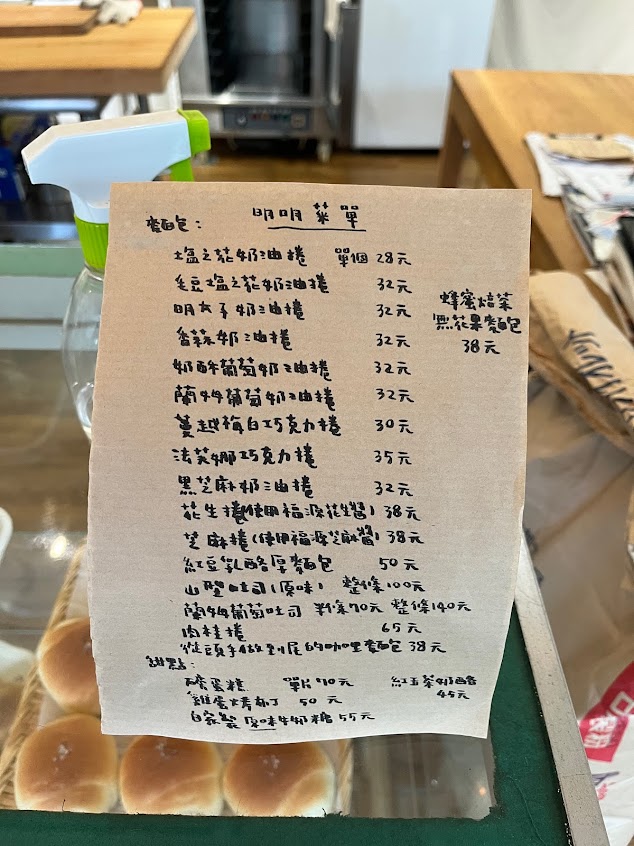 明明菜單
麵包:
塩之花奶油捲 單個 28元
毛豆塩之花奶油捲 32元
明太子奶油捲 32元
香蒜奶油捲 32元
奶酥葡萄奶油捲 32元
蘭姆葡萄奶油捲 32元
蔓越梅白巧克力捲 30元
法芙娜巧克力捲 35元
黑芝麻奶油捲 32元
花生捲(使用福源花生醬) 38元
芝麻捲(使用福源芝麻醬) 38元
紅豆乳酪厚麵包 50元
山型吐司(原味) 整條100元
蘭姆葡萄吐司 半條70元 整條140元
肉桂捲 65元
從頭手做到尾的咖哩麵包 38元
蜂蜜焙茶
無花果麵包
38元
甜點:
蛋糕 單片70元
紅玉茶奶酪
45元
雞蛋烤布丁 50元
自家製原味牛奶糖 55元